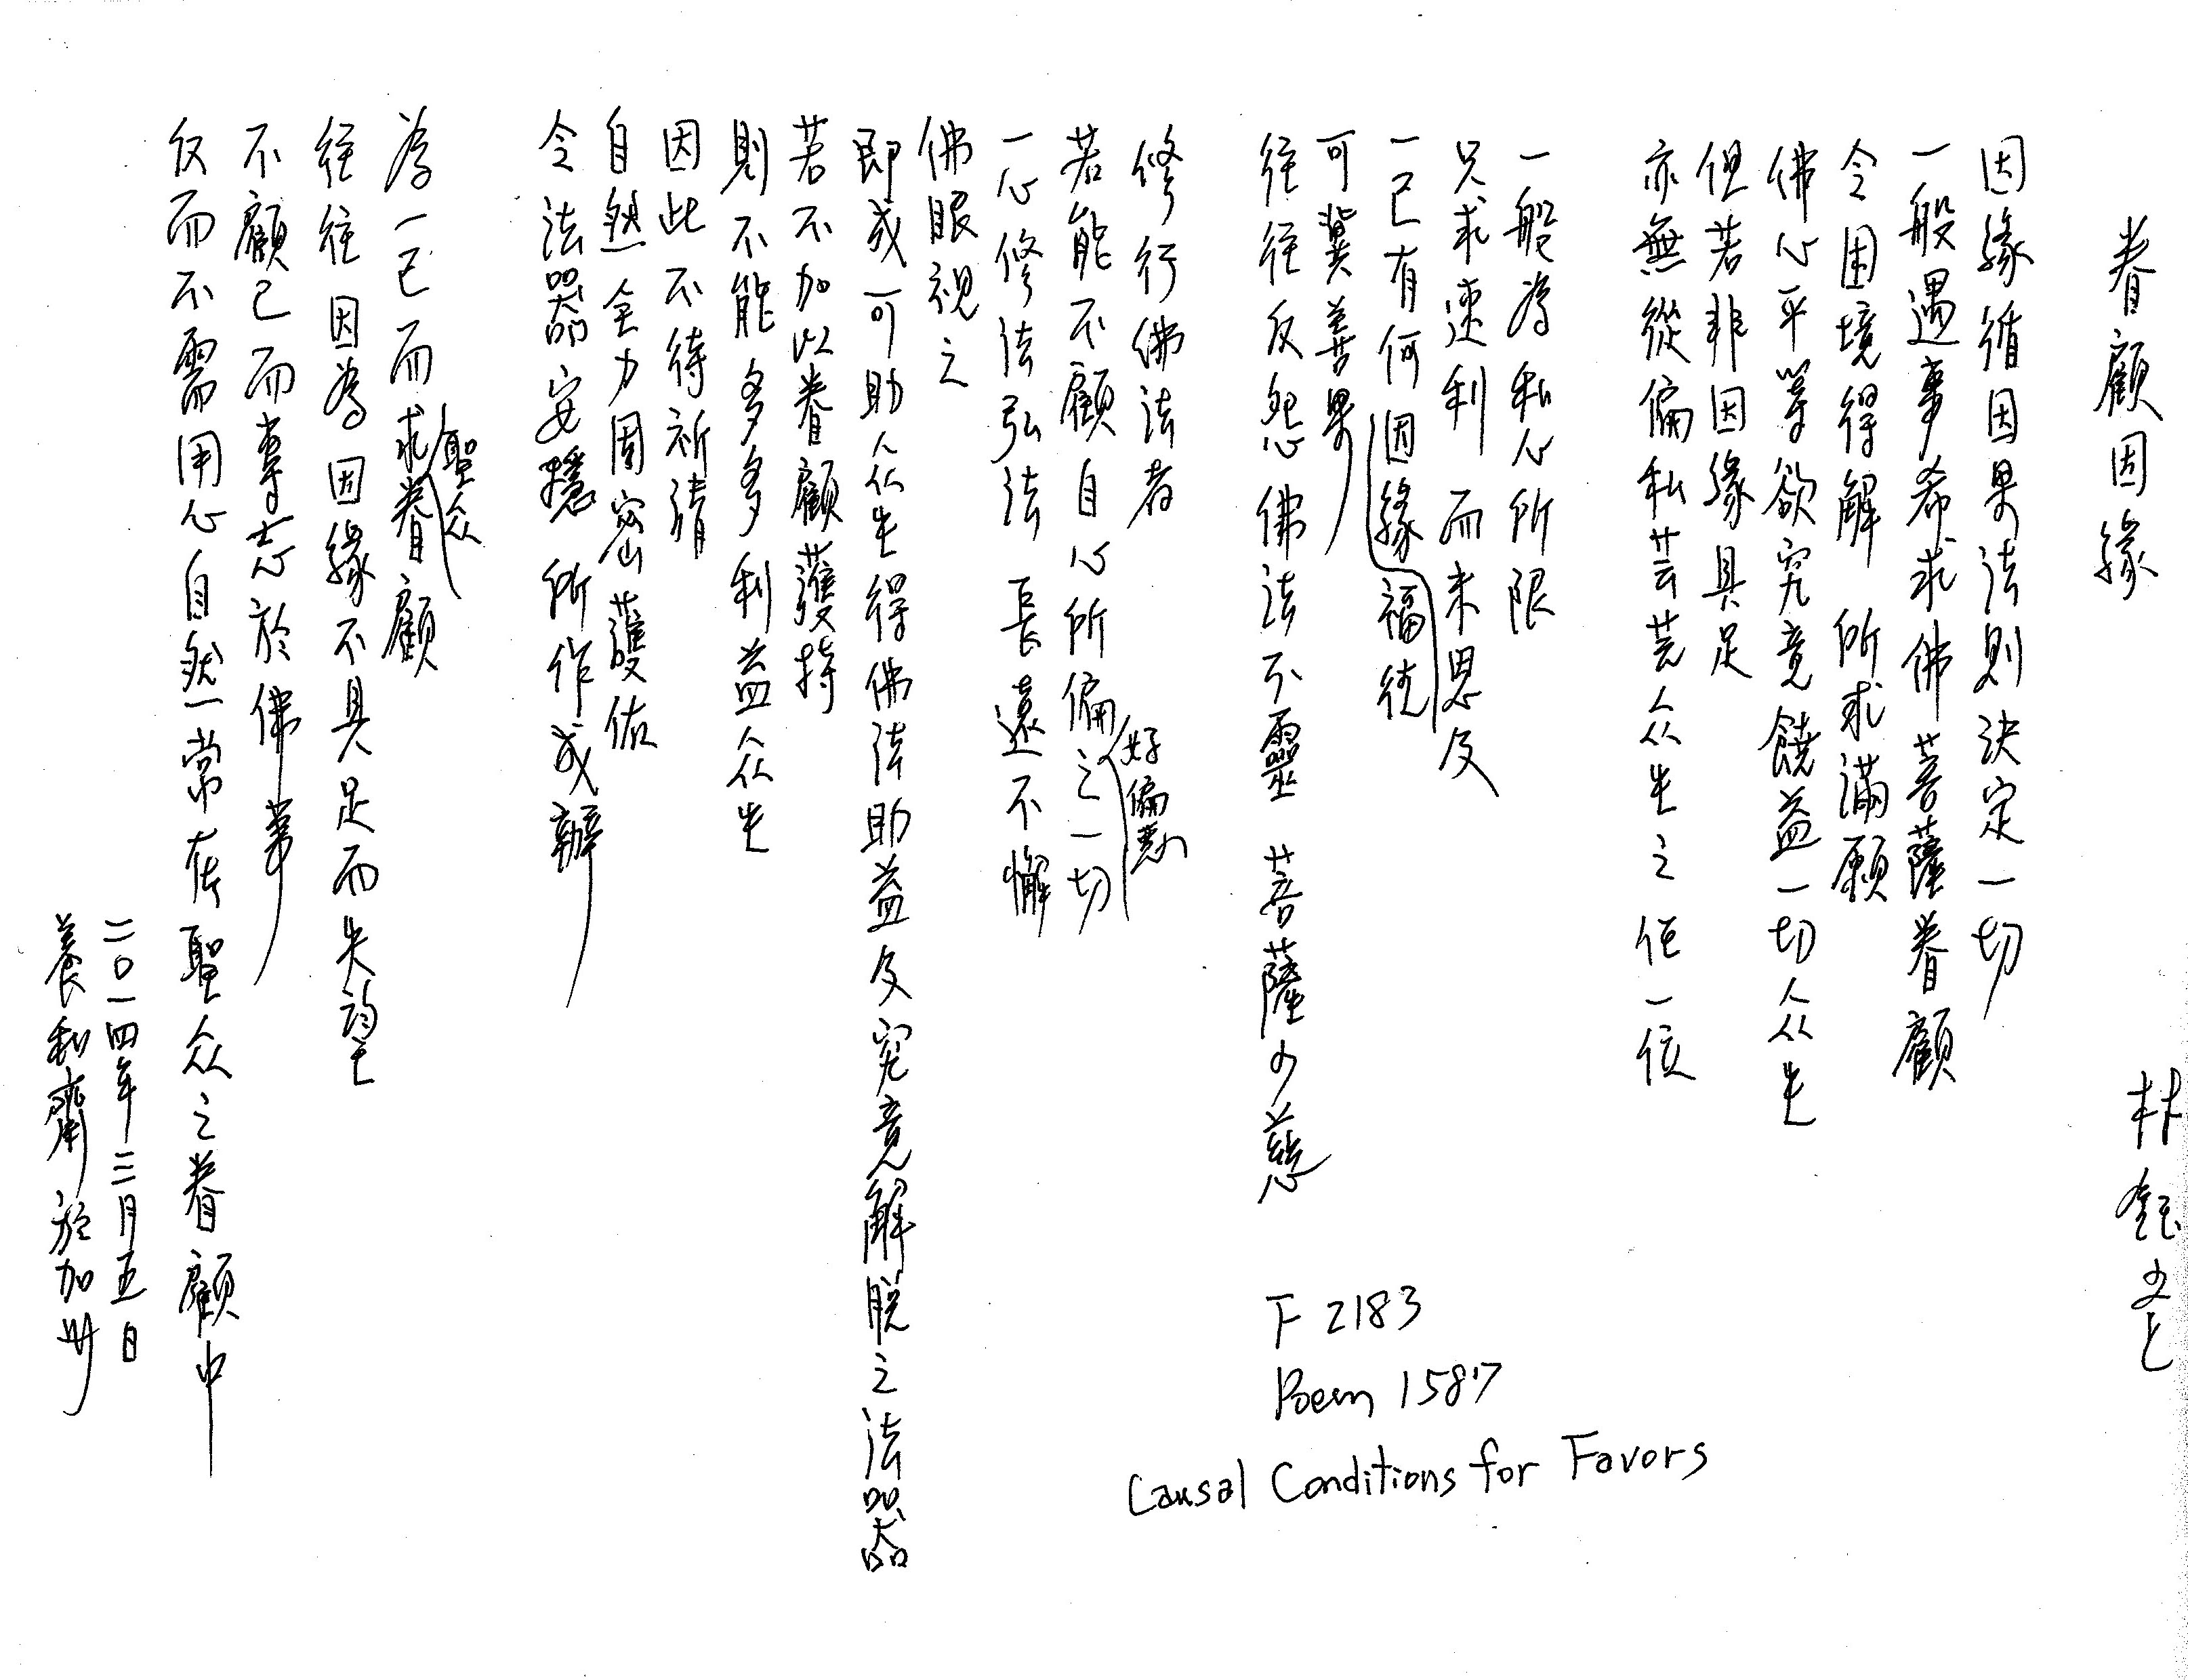 眷顧因緣
林鈺堂
因緣循因果法則決定一切
一般遇事希求佛菩薩眷顧
令困境得解 所求滿願
佛心平等欲究竟饒益一切众生
但若非因緣具足
亦無從偏私芸芸众生之任一位
一般為私心所限
只求速利而未思及
一己有何福德因緣
可冀善果
往往反怨佛法不靈 菩薩少慈
修行佛法者
若能不顧自心所偏好偏惡之一切
一心修法弘法 長遠不懈
佛眼視之
即成可助众生得佛法助益及究竟解脫之法器
若不加以眷顧護持
則不能多多利益众生
因此不待祈請
自然全力周密護佑
令法器安穩 所作成辦
為一己而求聖众眷顧
往往因為因緣不具足而失望
不顧己而專志於佛事
反而不需用心自然常在聖众之眷顧中
二〇一四年三月五日
養和齋 於加州
F 2183
Poem 1587
Causal Conditions for Favors